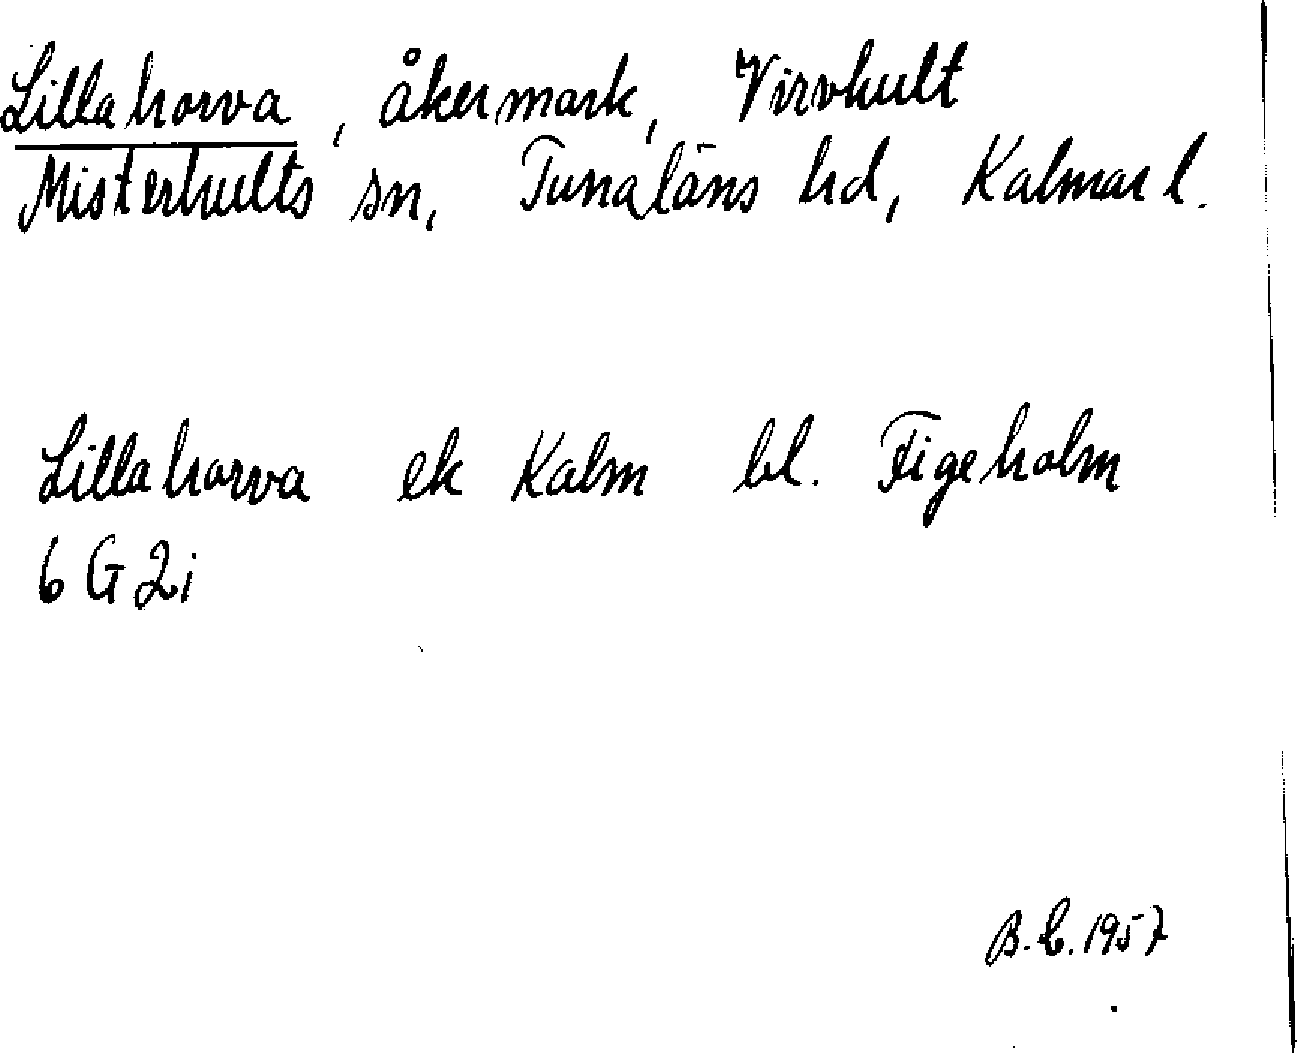 Lillahorva, åkermark, Virvhult
Misterhults sn, Tunaläns hd, Kalmar l.
Lillahorva ek Kalm bl. Figeholm
6 G 2i
B. E. 1957